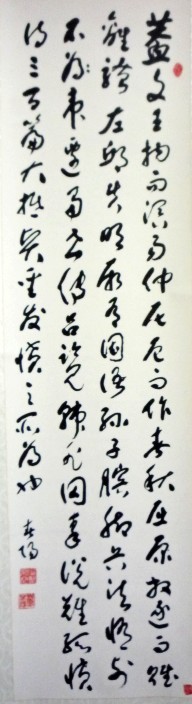 蓋文王拘而演易仲尼厄而作春秋屈原放逐乃賦
離騷左邱失明厥有國語孫子臏腳兵法修列
不韋遷蜀世傳呂覽韓非囚秦說難孤憤
詩三百篇大抵賢聖發憤之所為也